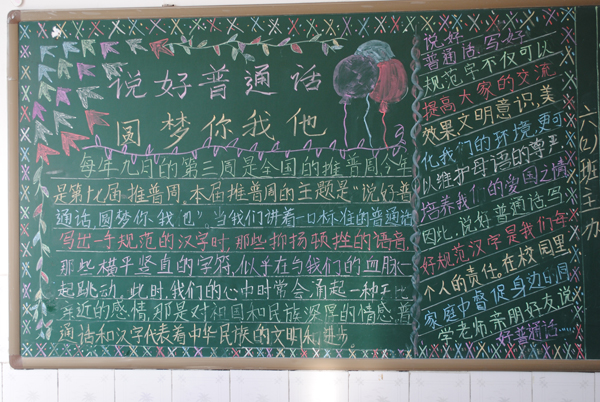 说好普通话
圆梦你我他
每年九月的第三周是全国的推普周今年
是第十七届推普周,本届推普周的主题是“说好普
通话,圆梦你我他”当我们讲着一口标准的普通话
写出一手规范的汉字时,那些抑扬顿挫的语音
那些横平竖直的字符,似乎在与我们的血脉一
起跳动,此时,我们的心中时常会涌起一种无比
亲近的感情,那是对祖国和民族深厚的情感,普
通话和汉字代表着中华民族的文明和进步。
说好
普通话,写好
规范字不仅可以
提高大家的交流
效果文明意识,美
化我们的环境,更可
以维护母语的尊严
培养我们的爱国之情
因此,说好普通话,写
好规范汉字是我们每
个人的责任。在校园里
家庭中督促身边的同
学老师亲朋好友说
好普通话……
六(1)班主办